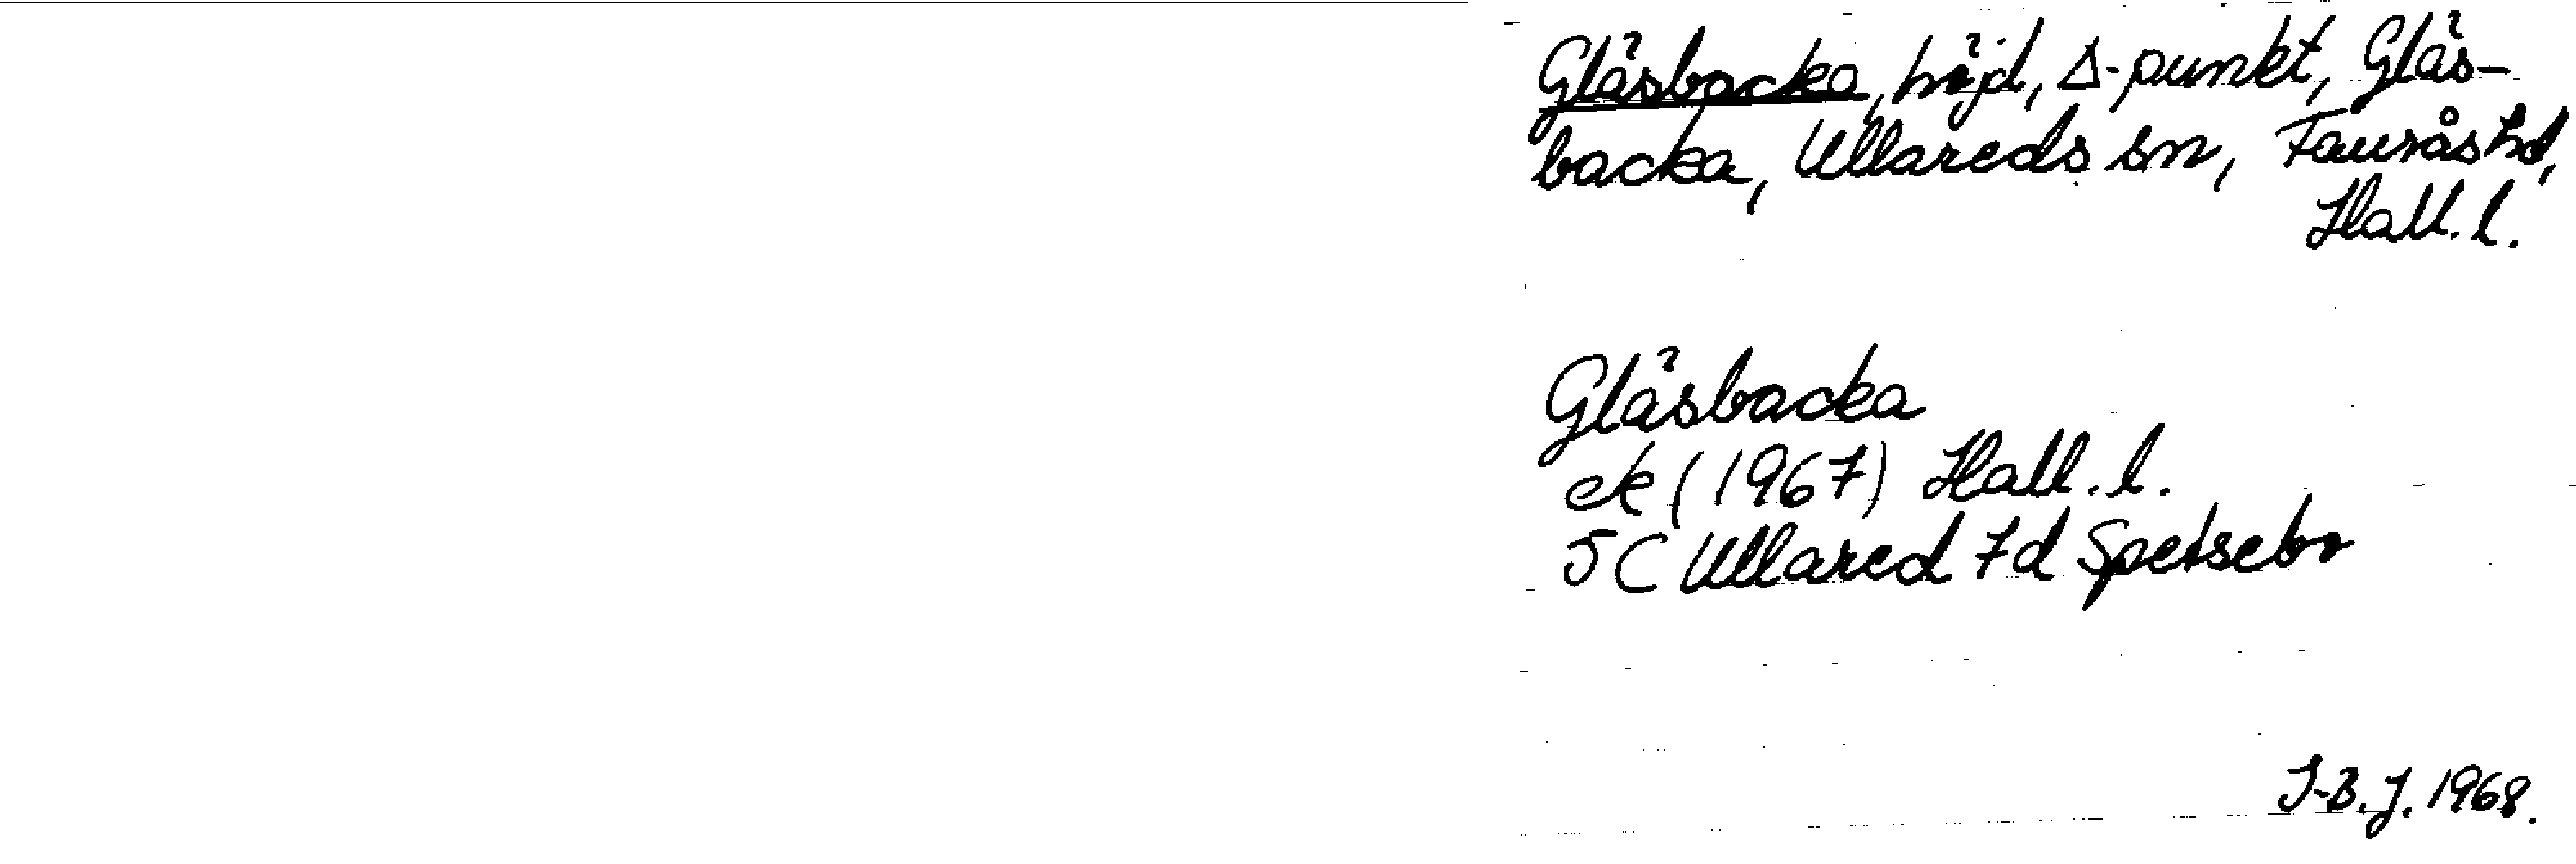 Gläsbacka, höjd, Δ-punkt, Gläs-
backa, Ullareds sn, Faurås hd,
Hall. l.
Gläsbacka
ek (1967) Hall. l.
5C Ullared 7d Spetsebo
I-B.J. 1968.